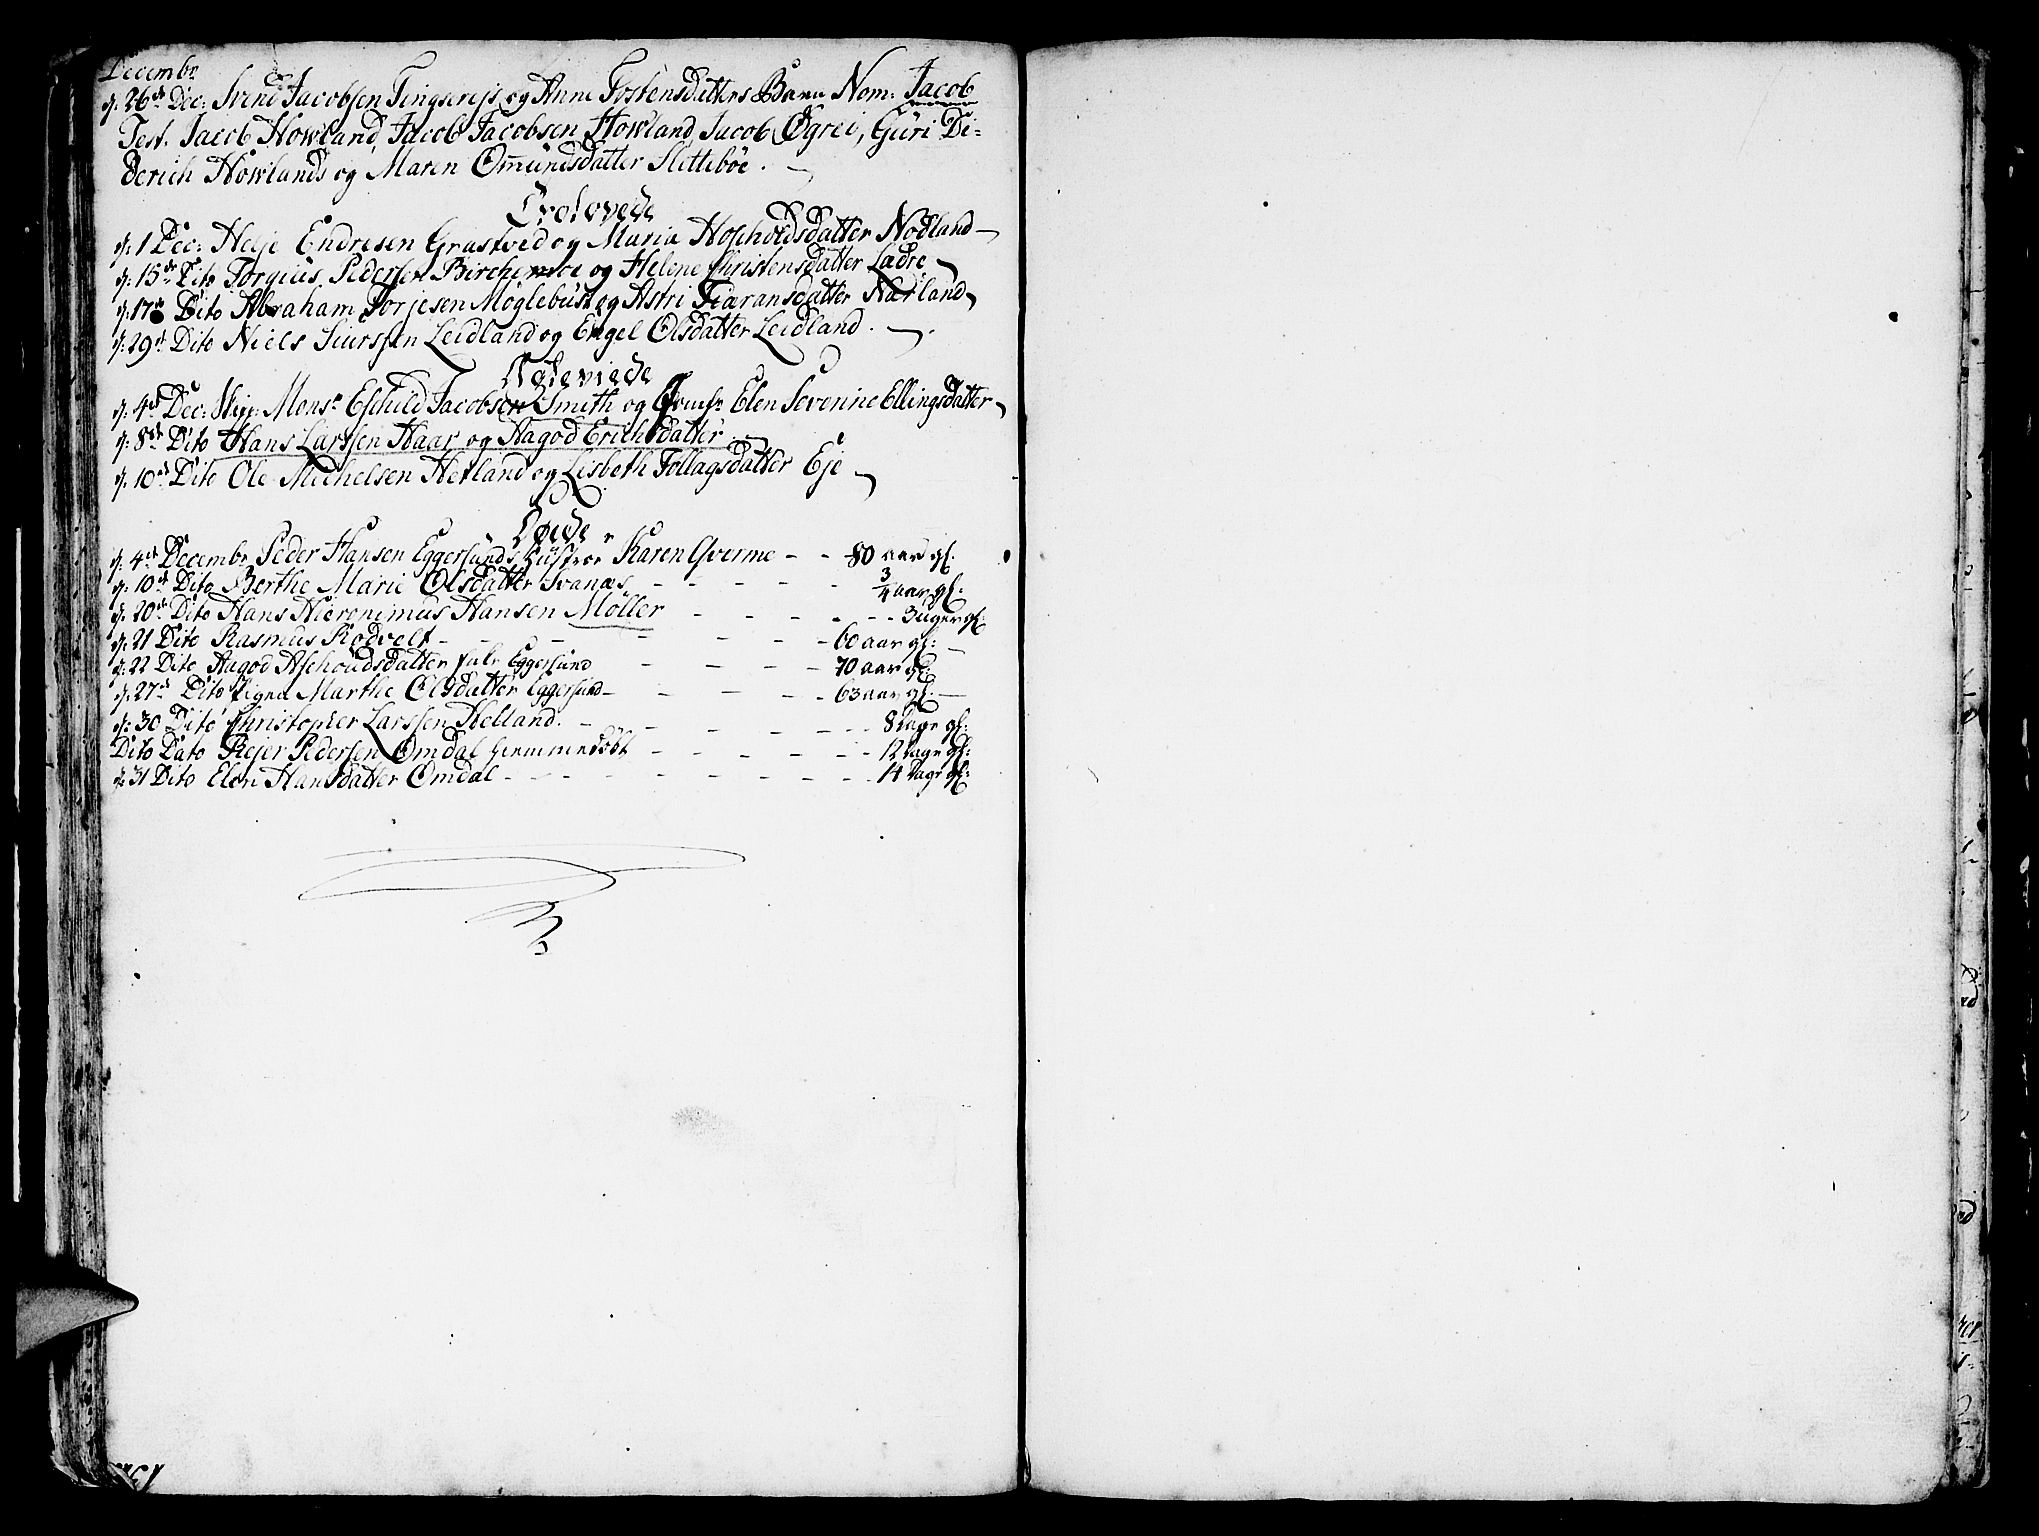 Decembr
d: 26de Dec: Svend Jacobsen Tengsereji og Anne Tostensdatters Barn Nom: Jacob
Test. Jacob Howland, Jacob Jacobsen Howland Jacob Øgrei, Guri De=
derich Howlands og Maren Omundsdatter Slettebøe.
Trolovede
d: 1 Dec: Helje Endresen Grastved og Maria Hoskoldsdatter Nodland
d: 15de Dito Torgius Pedersen Birchemoe og Helene Christensdatter Ladre
d: 17de Dito Abraham Torjesen Møglebust og Astri Tiæransdatter Nærland
d: 29de Dito Niels Siurssen Leidland og Engel Olsdatter Leidland.
Egteviede
d: 4de Dec: Skipp: Monsr Eschild Jacobsen Smith og Jomfr Elen Severine Ellingsdatter
d: 8de Dito Hans Larssen Haar og Aagod Erichsdatter
d: 10de Dito Ole Michelsen Hetland og Lisbeth Tollagsdatter Eje
Døde
d: 4de Decembr Peder Hansen Eggersunds hustroe Karen Qverme - - 80 aar gl.
d: 10de Dito Berthe Marie Olsdatter Svanæs - - - - - 3/4 aar gl:
d: 20de Dito Hans Hieronimus Hansen Moller - - - - - 3 uger gl:
d: 21 Dito Rasmus Rodvelt - - - - - 60 aar gl:
d: 22 Dito Aagod Aschoudsdatter Eggersund - - - 70 aar gl:
d: 27de Dito Pigen Marthe Olsdatter Eggersund - - - - 63 aar gl:
d: 30 Dito Christopher Larssen Helland. - - - - - 8 Dage gl:
Dito Dato Rejer Pedersen Omdal hiemmedøbt - - - - 12 Dage gl:
d: 31 Dito Elen Hansdatter Omdal - - - - - - 14 Dage gl: